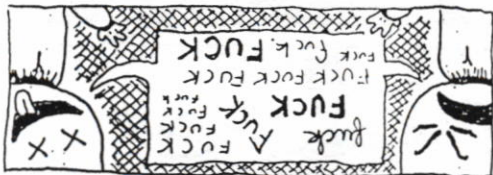 fuck FUCK FUCK FUCK
FUCK
FUCK FUCK
FUCK
FUCK
FUCK FUCK FUCK FUCK
FUCK fuck. FUCK FUCK